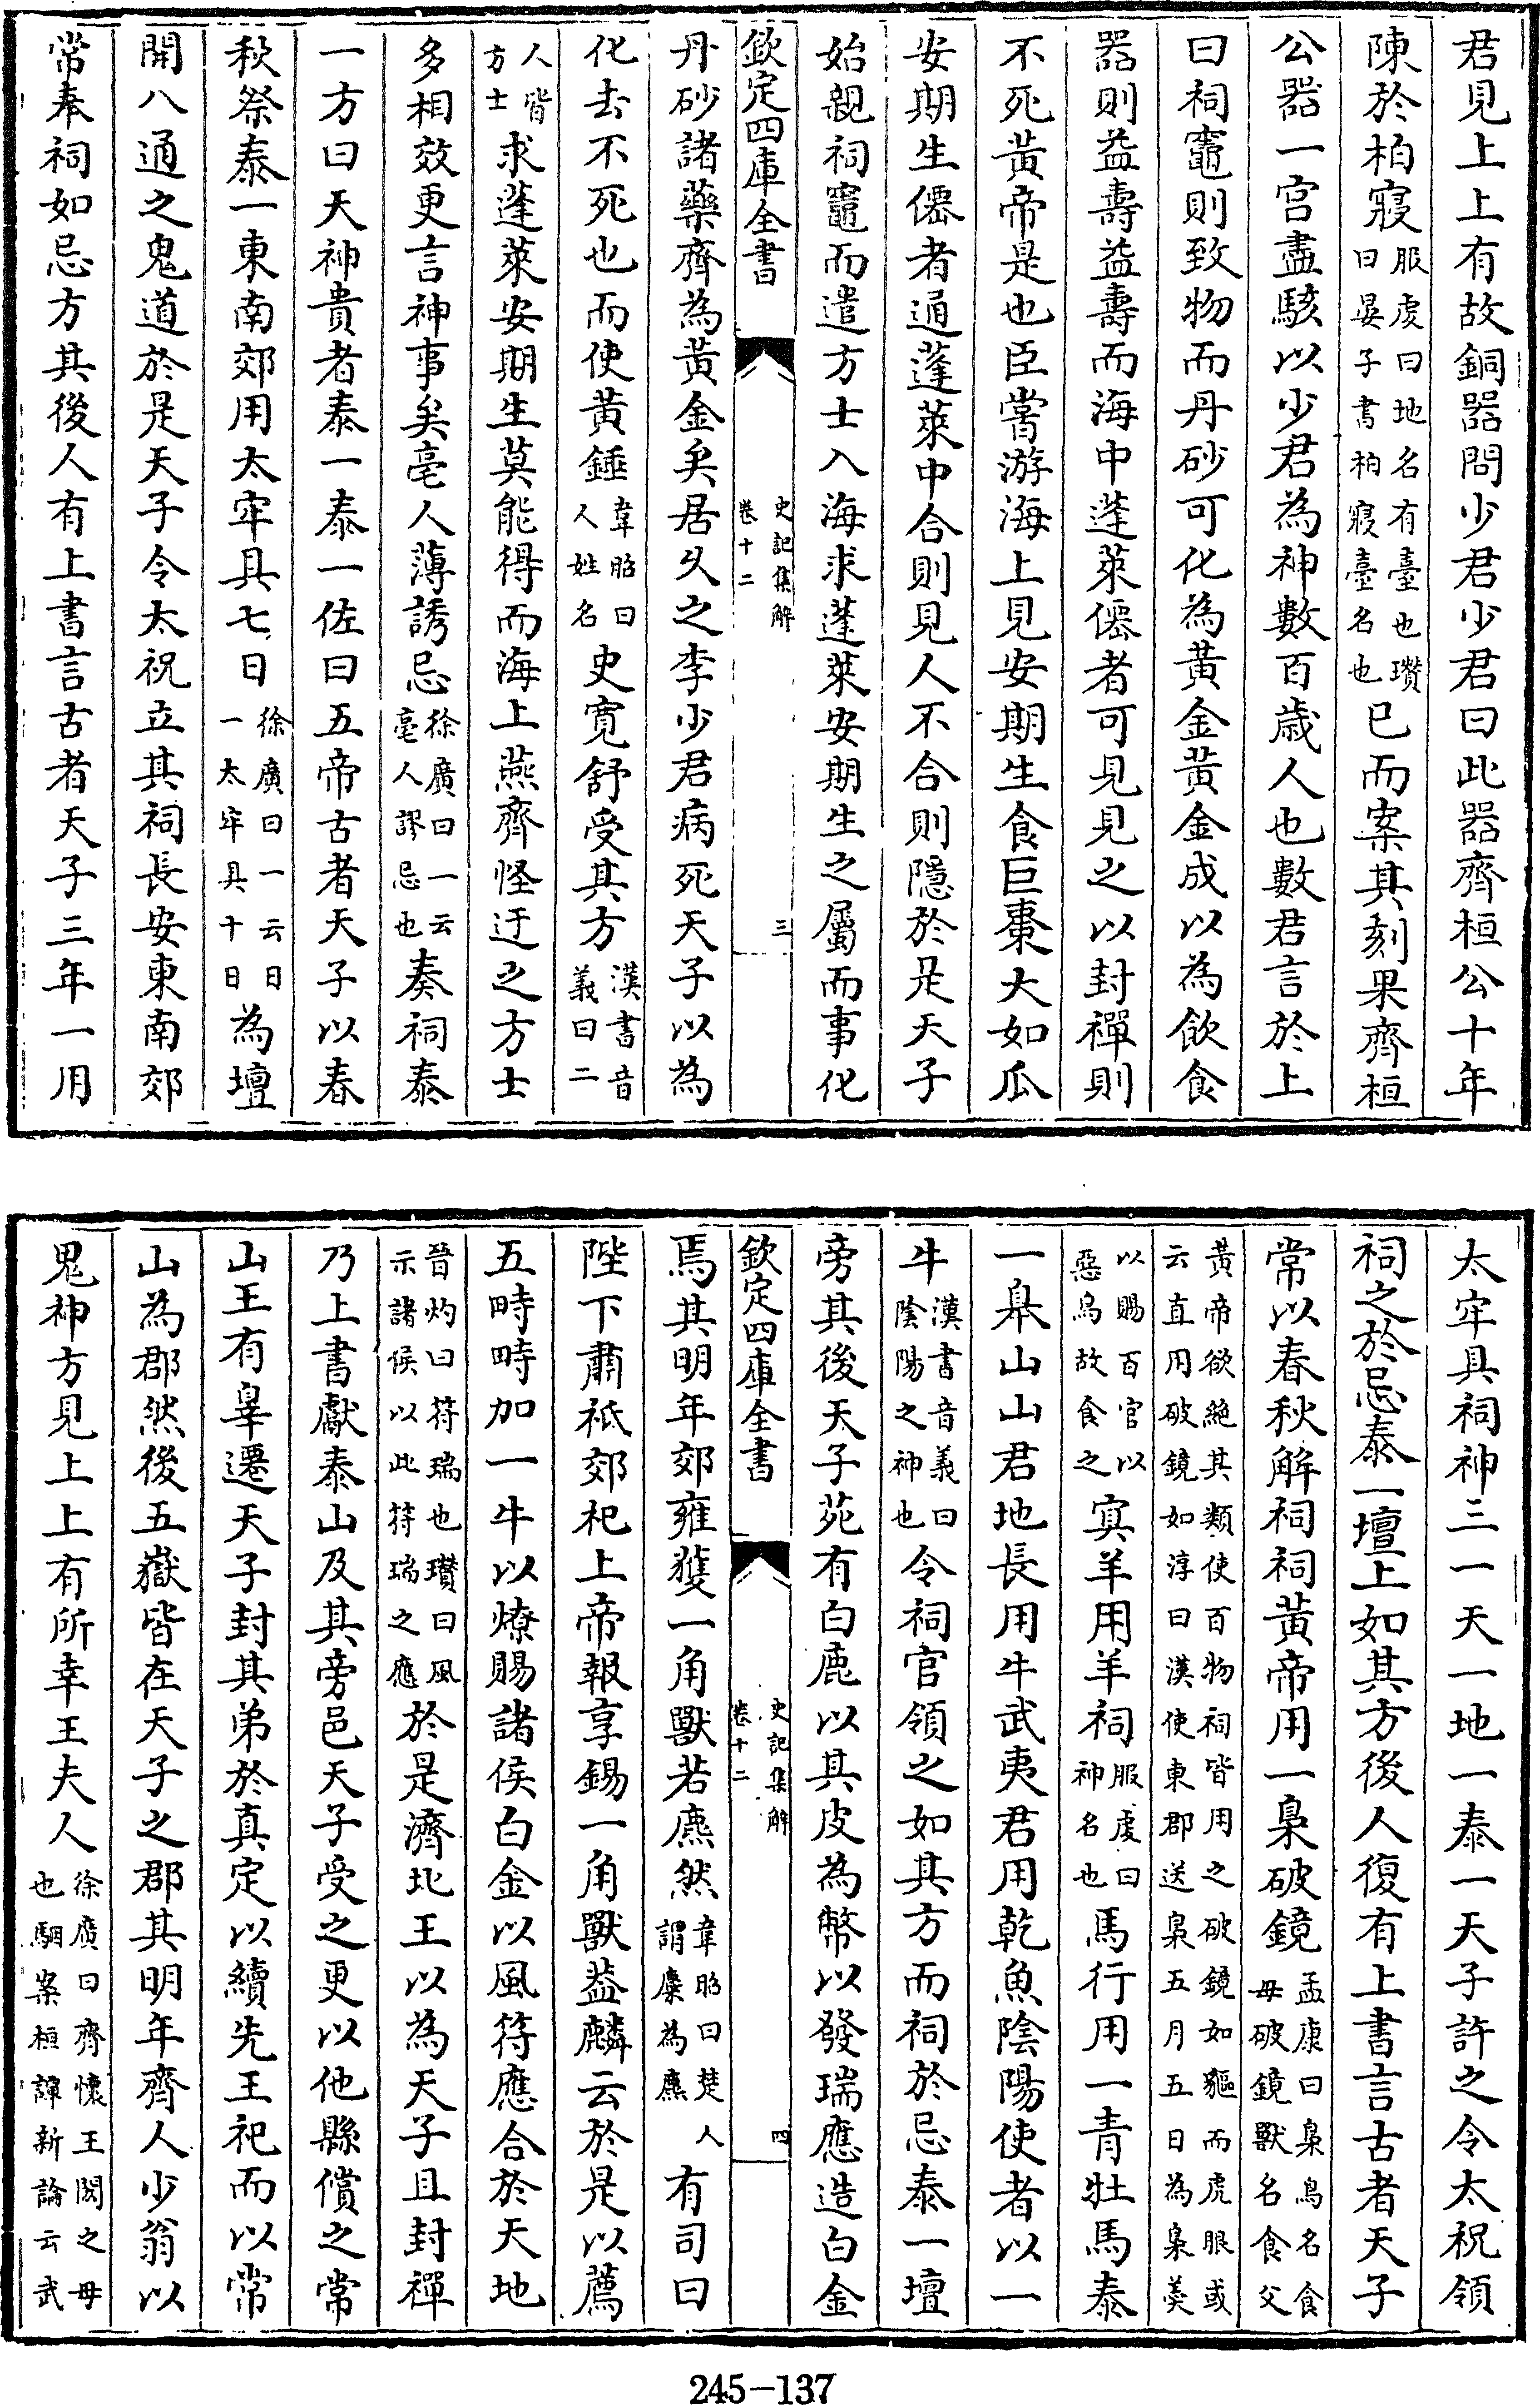 君見上上有故銅器問少君少君曰此器齊桓公十年
陳於柏寢服虔曰地名有臺也瓚曰晏子書柏寢臺名也已而案其刻果齊桓
公器一宫盡駭以少君為神數百歲人也數君言於上
曰祠竈則致物而丹砂可化為黃金黃金成以為飲食
器則益壽益壽而海中蓬萊僊者可見見之以封禪則
不死黃帝是也臣嘗游海上見安期生食巨棗大如瓜
安期生僊者通蓬萊中合則見人不合則隱於是天子
始親祠竈而遣方士入海求蓬萊安期生之屬而事化
欽定四庫全書
史記集解
卷十二
三
丹砂諸藥齊為黃金矣居久之李少君病死天子以為
化去不死也而使黃錘韋昭曰人姓名史寬舒受其方漢書音義曰二
人皆方士求蓬萊安期生莫能得而海上燕齊怪迂之方士
多相效更言神事矣亳人薄誘忌徐廣曰一云亳人謬忌也奏祠泰
一方曰天神貴者泰一泰一佐曰五帝古者天子以春
秋祭泰一東南郊用太牢具七日徐廣曰一云日一太牢具十日為壇
開八通之鬼道於是天子令太祝立其祠長安東南郊
常奉祠如忌方其後人有上書言古者天子三年一用
太牢具祠神三一天一地一泰一天子許之令太祝領
祠之於忌泰一壇上如其方後人復有上書言古者天子
常以春秋解祠祠黃帝用一梟破鏡孟康曰梟鳥名食母破鏡獸名食父
黃帝欲絶其類使百物祠皆用之破鏡如貙而虎眼或云直用破鏡如淳曰漢使東郡送梟五月五日為梟羹
以賜百官以惡鳥故食之㝠羊用羊祠服虔曰神名也馬行用一青牡馬泰
一皋山山君地長用牛武夷君用乾魚陰陽使者以一
牛漢書音義曰陰陽之神也令祠官領之如其方而祠於忌泰一壇
旁其後天子苑有白鹿以其皮為幣以發瑞應造白金
欽定四庫全書
史記集解
卷十二
四
焉其明年郊雍獲一角獸若麃然韋昭曰楚人謂麋為麃有司曰
陛下肅祗郊祀上帝報享錫一角獸葢麟云於是以薦
五畤畤加一牛以燎賜諸侯白金以風符應合於天地
晉灼曰符瑞也瓚曰風示諸侯以此符瑞之應於是濟北王以為天子且封禪
乃上書獻泰山及其旁邑天子受之更以他縣償之常
山王有辠遷天子封其弟於真定以續先王祀而以常
山為郡然後五嶽皆在天子之郡其明年齊人少翁以
鬼神方見上上有所幸王夫人徐廣曰齊懷王閎之母也駰案桓譚新論云武
245-137